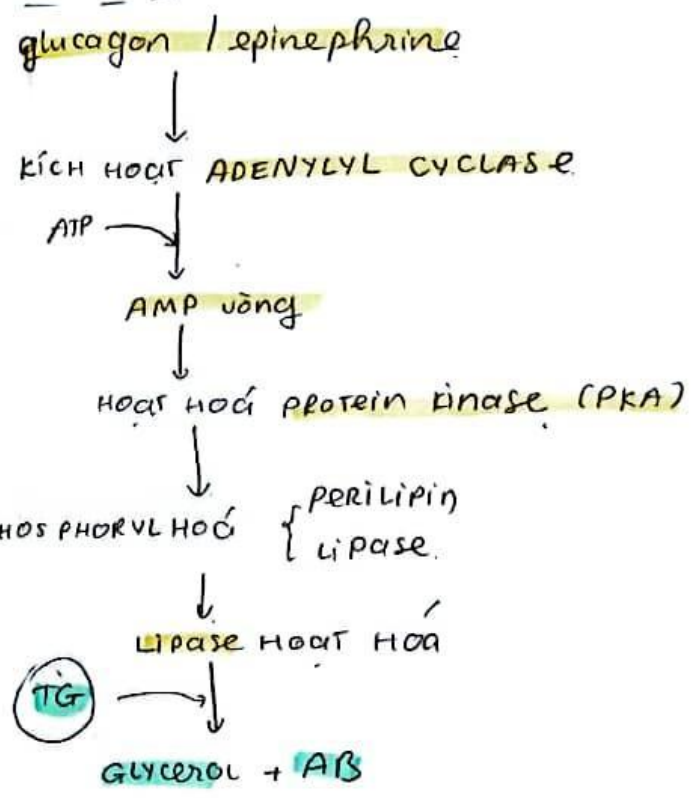 glucagon / epinephrine
KÍCH HOẠT ADENYLYL CYCLASE
ATP
AMP vòng
HOẠT HOÁ PROTEIN KINASE (PKA)
HOSPHORYL HOÁ { PERILIPIN
LIPASE.
LIPASE HOẠT HOÁ
TG
GLYCEROL + AB